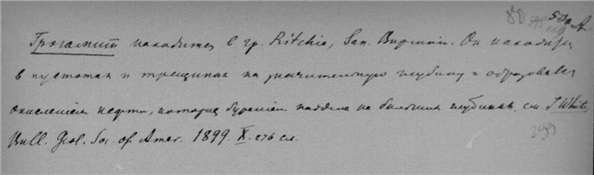 50 A
Грэгамит находится в гр. Ritchie, Зап. Виргинии. Он находится
в пустотах и трещинах на значительную глубину и образовался
окислением нефти, которая бурением найдена на больших глубинах. см. I. White
Bull. Geol. Soc. of Amer. 1899. X. 276 сл.